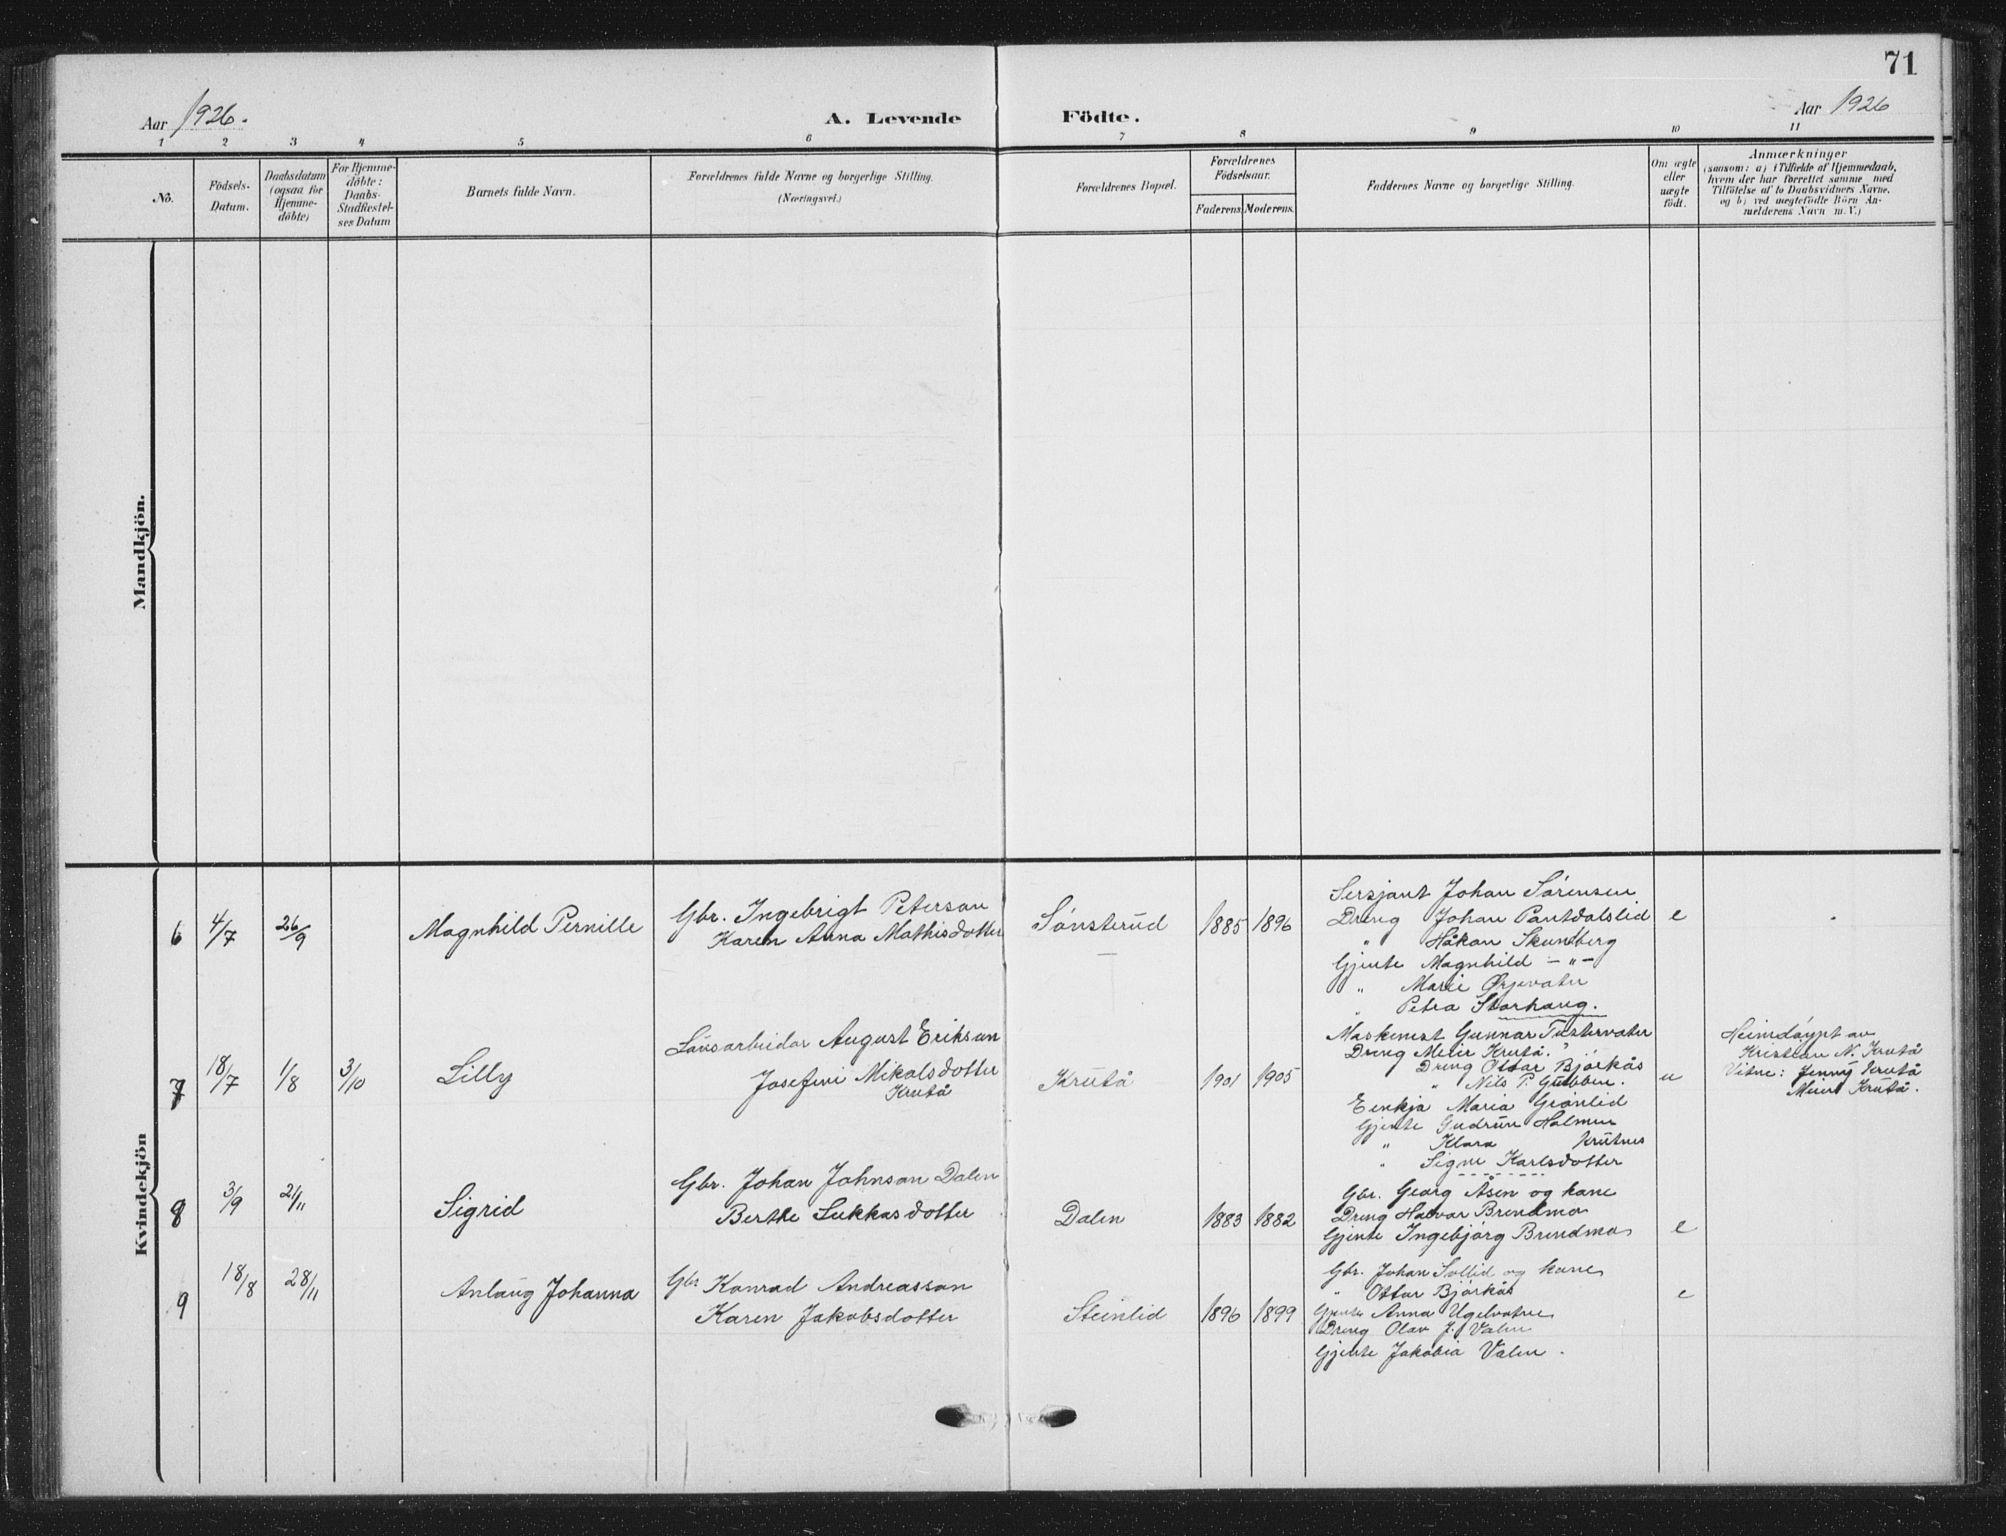 71
Aar 1926.
A. Levende Födte.
Aar 1926
1 2 3 4 5 6 7 8 9 10 11
No.
Födsels-
Datum.
Daabsdatum
(ogsaa for
Hjemme-
döbte)
For Hjemme-
döbte:
Daabs-
Stadfæstel-
ses Datum
Barnets fulde Navn.
Forældrenes fulde Navne og borgerlige Stilling.
(Næringsvei.)
Forældrenes Bopæl.
Forældrenes
Födselsaar.
Faderens.
Moderens.
Faddernes Navne og borgerlige Stilling.
Om ægte
eller
uægte
födt.
Anmærkninger
(saasom: a) i Tilfælde af Hjemmedaab,
hvem der har forrettet samme med
Tilföielse af to Daabsvidners Navne,
og b) ved uægtefödte Börn An-
melderens Navn m. V.)
Mandkjön.
Kvindekjön
6 4/7 26/9 Magnhild Pernille
Gbr. Ingebrigt Peterson
Karen Anna Mathisdotter
Sönsterud 1885 1896
Sersjant Johan Sørensen
Dreng Johan Pantdalslid e
" Håkon Skundberg
Gjente Magnhild — " —
" Marie Ørjevatn
" Petra Storhaug.
7 18/7 1/8 3/10 Lilly
Lausarbeidar August Eriksen
Josefine Mikalsdotter
Krutå
Krutå 1901 1905
Maskenest Gunnar Tustervatn
Dreng Meier Krutå.
Dreng Ottar Bjørkås
" Nils P. Gubben. u
Eenkja Maria Grönlid
Gjente Gudrun Holmen
" Klara Krutnes
" Signe Karlsdotter
Heimdöypt av
Kristian N. Krutå
Vitne: Jenny Krutå
Meier Krutå.
8 3/9 21/11 Sigrid
Gbr. Johan Johnson Dalen
Berthe Lukkasdotter
Dalen 1883 1882
Gbr. Georg Åsen og kone
Dreng Halvar Brendmo
Gjente Ingebjörg Brendmo e
9 18/8 28/11 Anlaug Johanna
Gbr Konrad Andreasson
Karen Jakobsdotter
Steinlid 1896 1899
Gbr. Johan Sollid og kone
" Ottar Bjørkås e
Gjente Anna Ugelvatne
Dreng Olav J. Valen
Gjente Jakobia Valen.